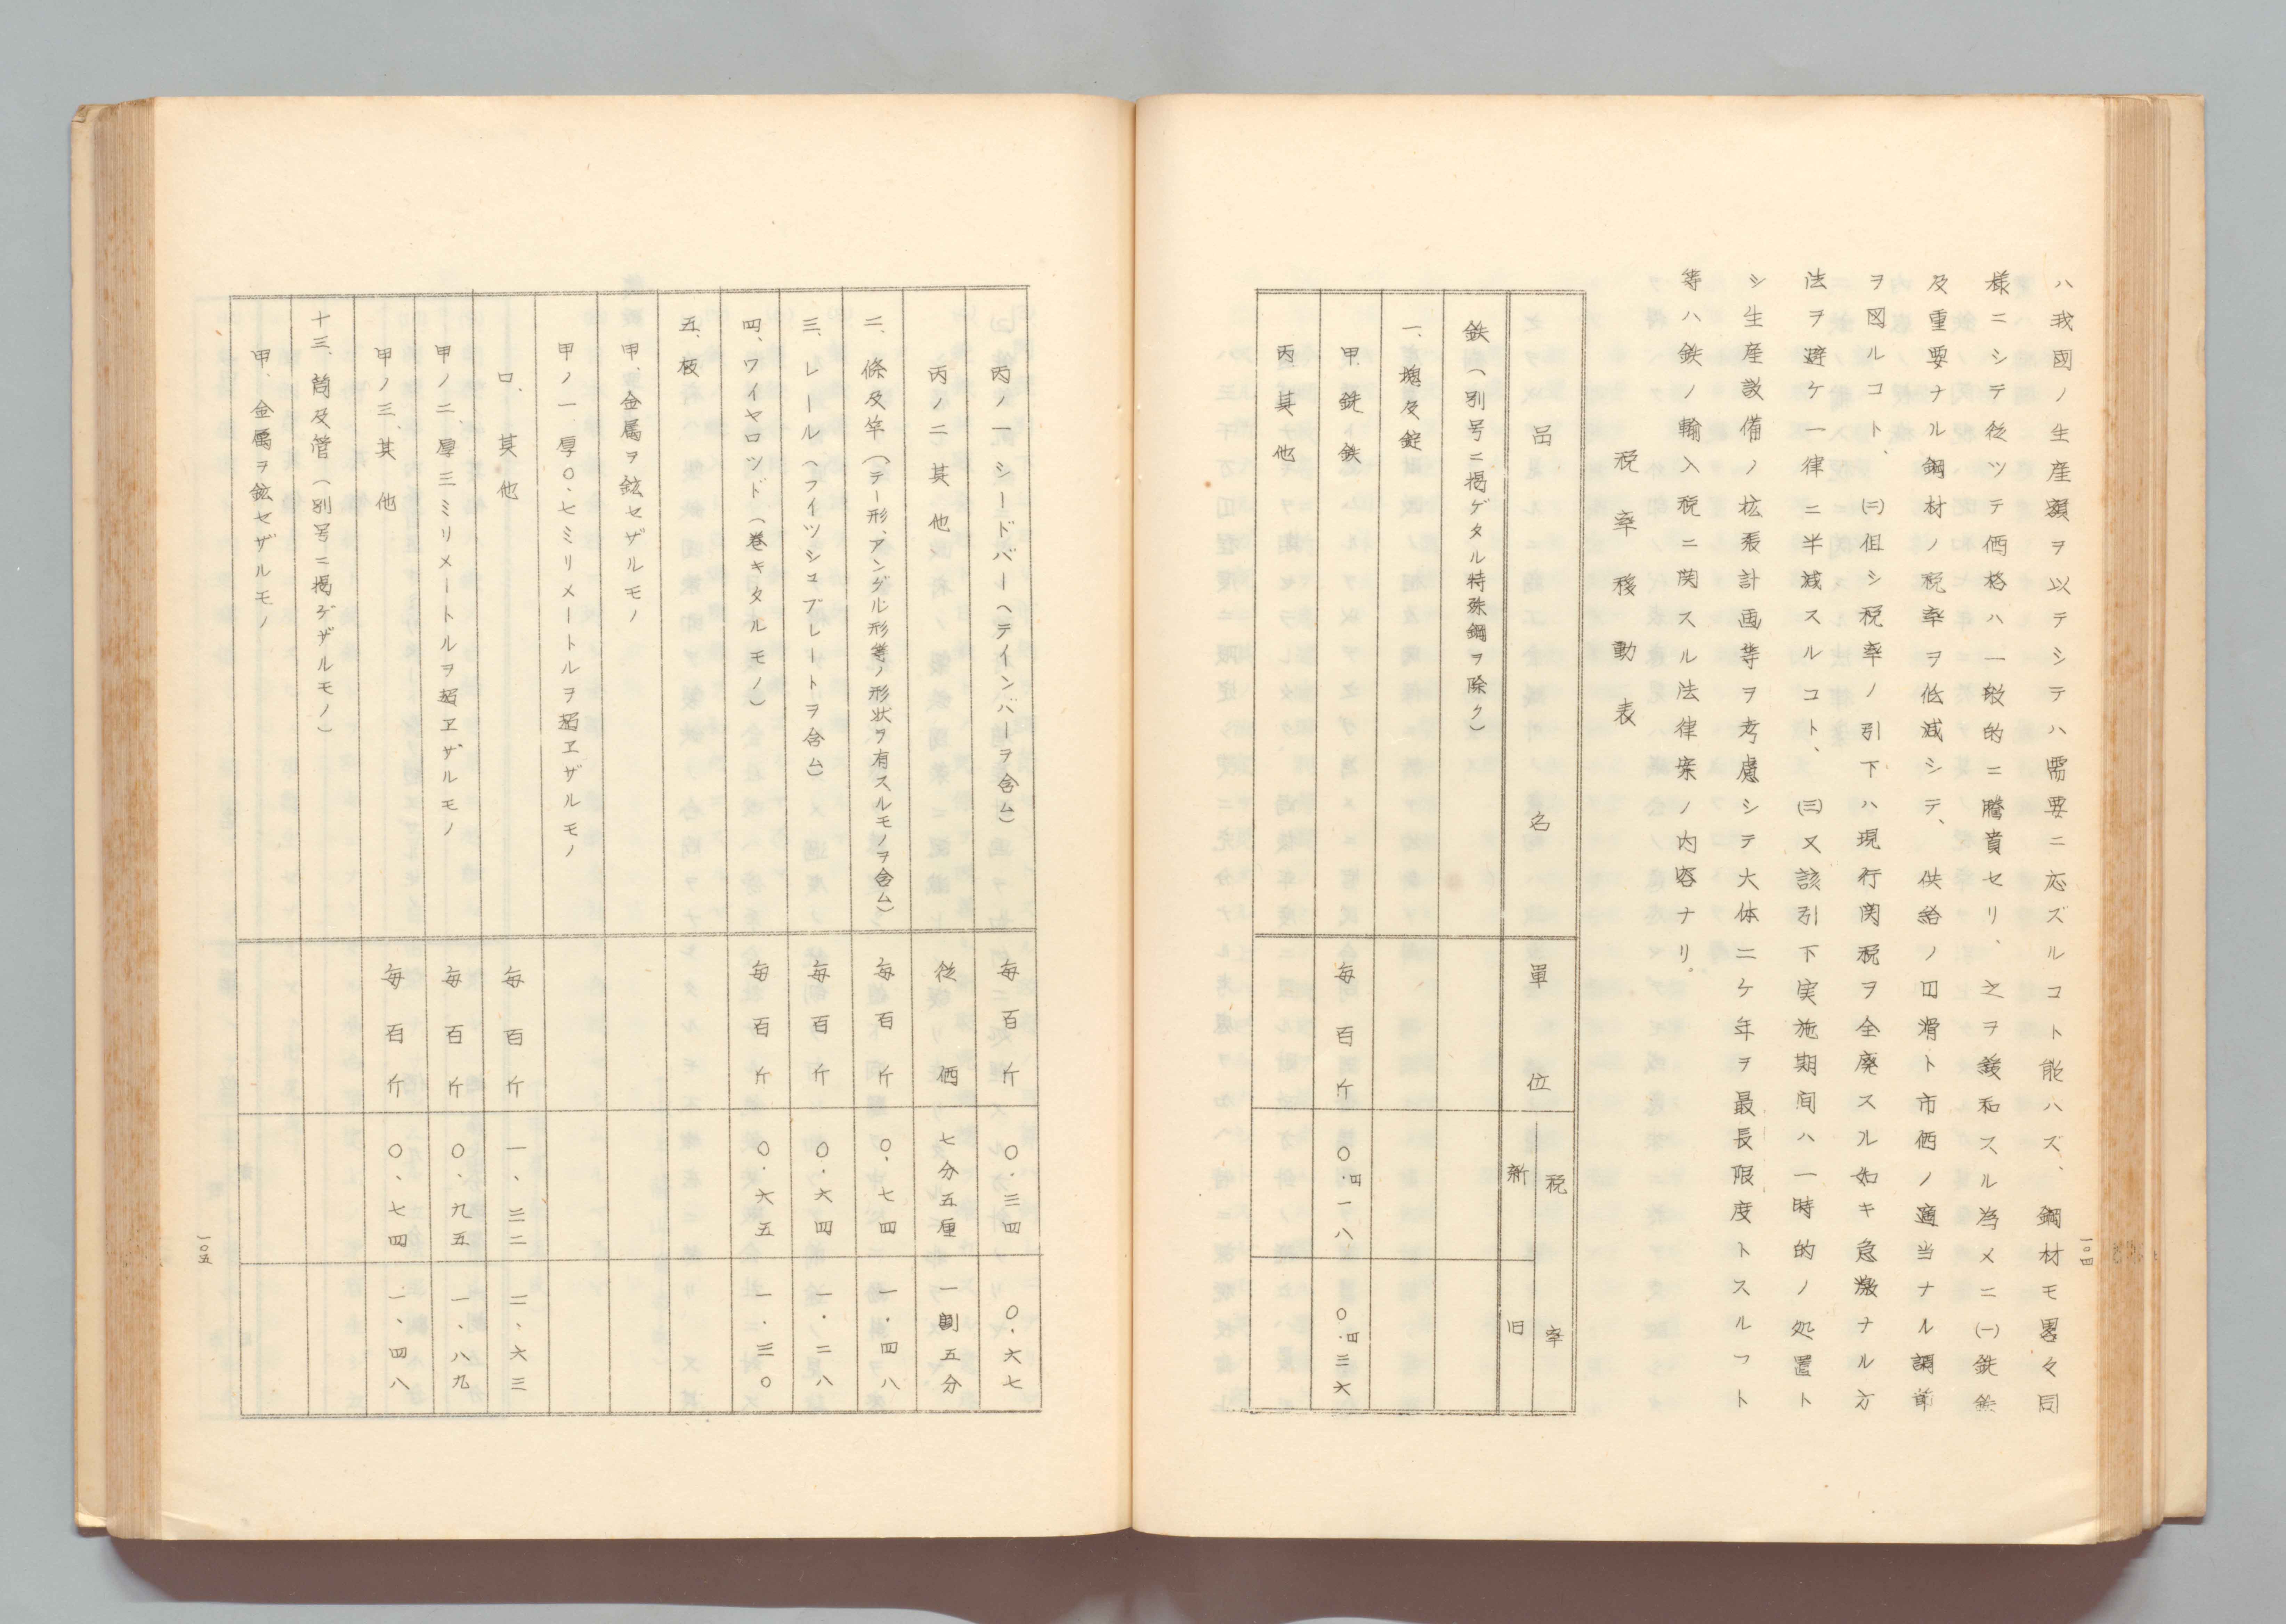 ハ我國ノ生産額ヲ以テシテハ需要ニ応ズルコト能ハズ、鋼材モ畧々同
様ニシテ従ツテ価格ハ一般的ニ騰貴セリ、之ヲ緩和スル為メニ㈠銑鉄
及重要ナル鋼材ノ税率ヲ低減シテ、供給ノ円滑ト市価ノ適当ナル調節
ヲ図ルコト、㈡但シ税率ノ引下ハ現行関税ヲ全廃スル如キ急激ナル方
法ヲ避ケ一律ニ半減スルコト、㈢又該引下実施期間ハ一時的ノ処置ト
シ生産設備ノ拡張計画等ヲ考慮シテ大体二ケ年ヲ最長限度トスルコト
等ハ鉄ノ輸入税ニ関スル法律案ノ内容ナリ。
税率移動表
品名 單位 税率 新 旧
鉄(別号ニ掲ゲタル特殊鋼ヲ除ク)
一、塊及錠
甲 銑鉄 毎百斤 〇.円一八 〇.円三六
丙 其他
一〇四
丙ノ一 シードバー(テインバーヲ含ム) 毎百斤 〇.三四 〇.六七
丙ノ二 其他 従価 七分五厘 一割五分
二、條及竿(テー形、アングル形等ノ形状ヲ有スルモノヲ含ム) 毎百斤 〇、七四 一.四八
三、レール(フイツシユプレートヲ含ム) 毎百斤 〇.六四 一.二八
四、ワイヤロツド(巻キタルモノ) 毎百斤 〇.六五 一.三〇
五、板
甲、金属ヲ鉱セザルモノ
甲ノ一 厚〇.七ミリメートルヲ超ヱザルモノ
ロ、其他 毎百斤 一、三二 二、六三
甲ノ二、厚三ミリメートルヲ超ヱザルモノ 毎百斤 〇、九五 一、八九
甲ノ三、其他 毎百斤 〇、七四 一、四八
十三、筒及管(別号ニ掲ゲザルモノ)
甲、金属ヲ鉱セザルモノ
一〇五